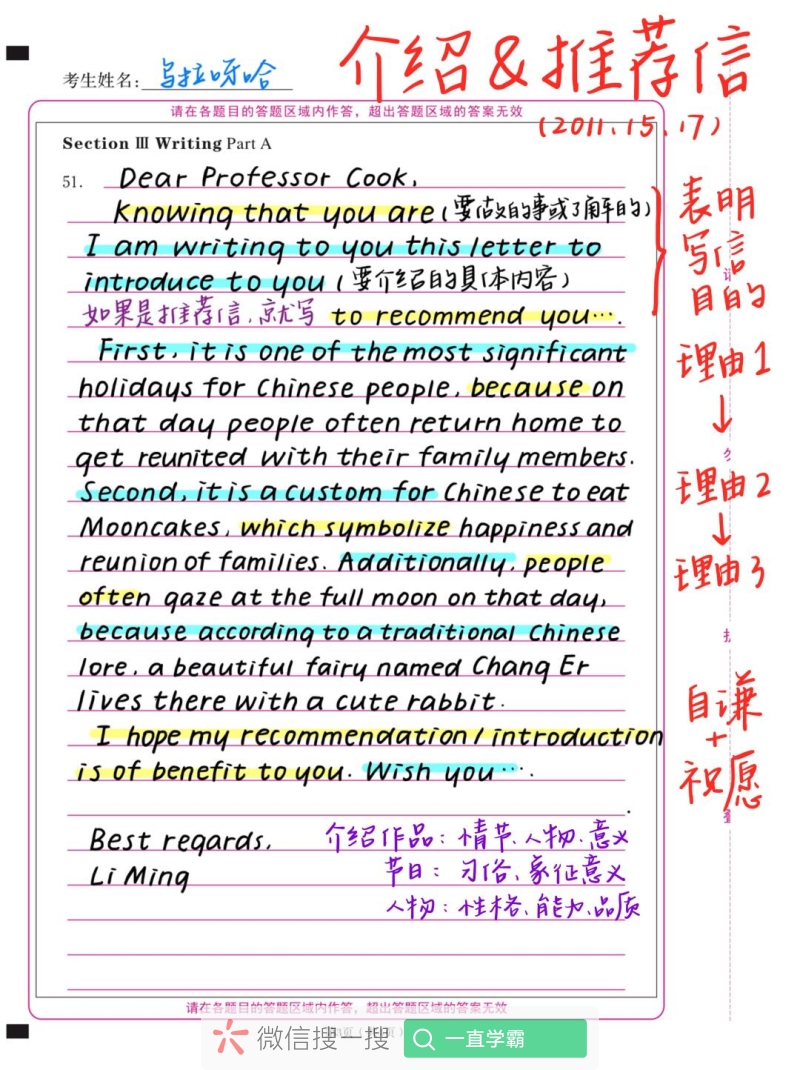 介绍&推荐信
(2011、15、17)
考生姓名：乌拉呀哈
请在各题目的答题区域内作答，超出答题区域的答案无效
Section Ⅲ Writing Part A
51. Dear Professor Cook,
Knowing that you are (要做的事或了解的)
I am writing to you this letter to
introduce to you (要介绍的具体内容)
如果是推荐信,就写 to recommend you….
表明
写信
目的
First, it is one of the most significant
holidays for Chinese people, because on
that day people often return home to
get reunited with their family members.
理由1
↓
Second, it is a custom for Chinese to eat
Mooncakes, which symbolize happiness and
reunion of families. Additionally, people
often gaze at the full moon on that day,
because according to a traditional Chinese
lore, a beautiful fairy named Chang Er
lives there with a cute rabbit.
理由2
↓
理由3
I hope my recommendation/introduction
is of benefit to you. Wish you….
自谦
+
祝愿
Best regards,
Li Ming
介绍作品：情节、人物、意义
节日：习俗、象征意义
人物：性格、能力、品质
请在各题目的答题区域内作答，超出答题区域的答案无效
微信搜一搜
一直学霸